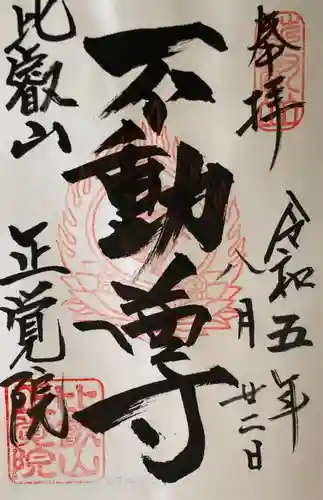 奉拝
令和五年
八月廿二日
不動尊
比叡山
正覚院